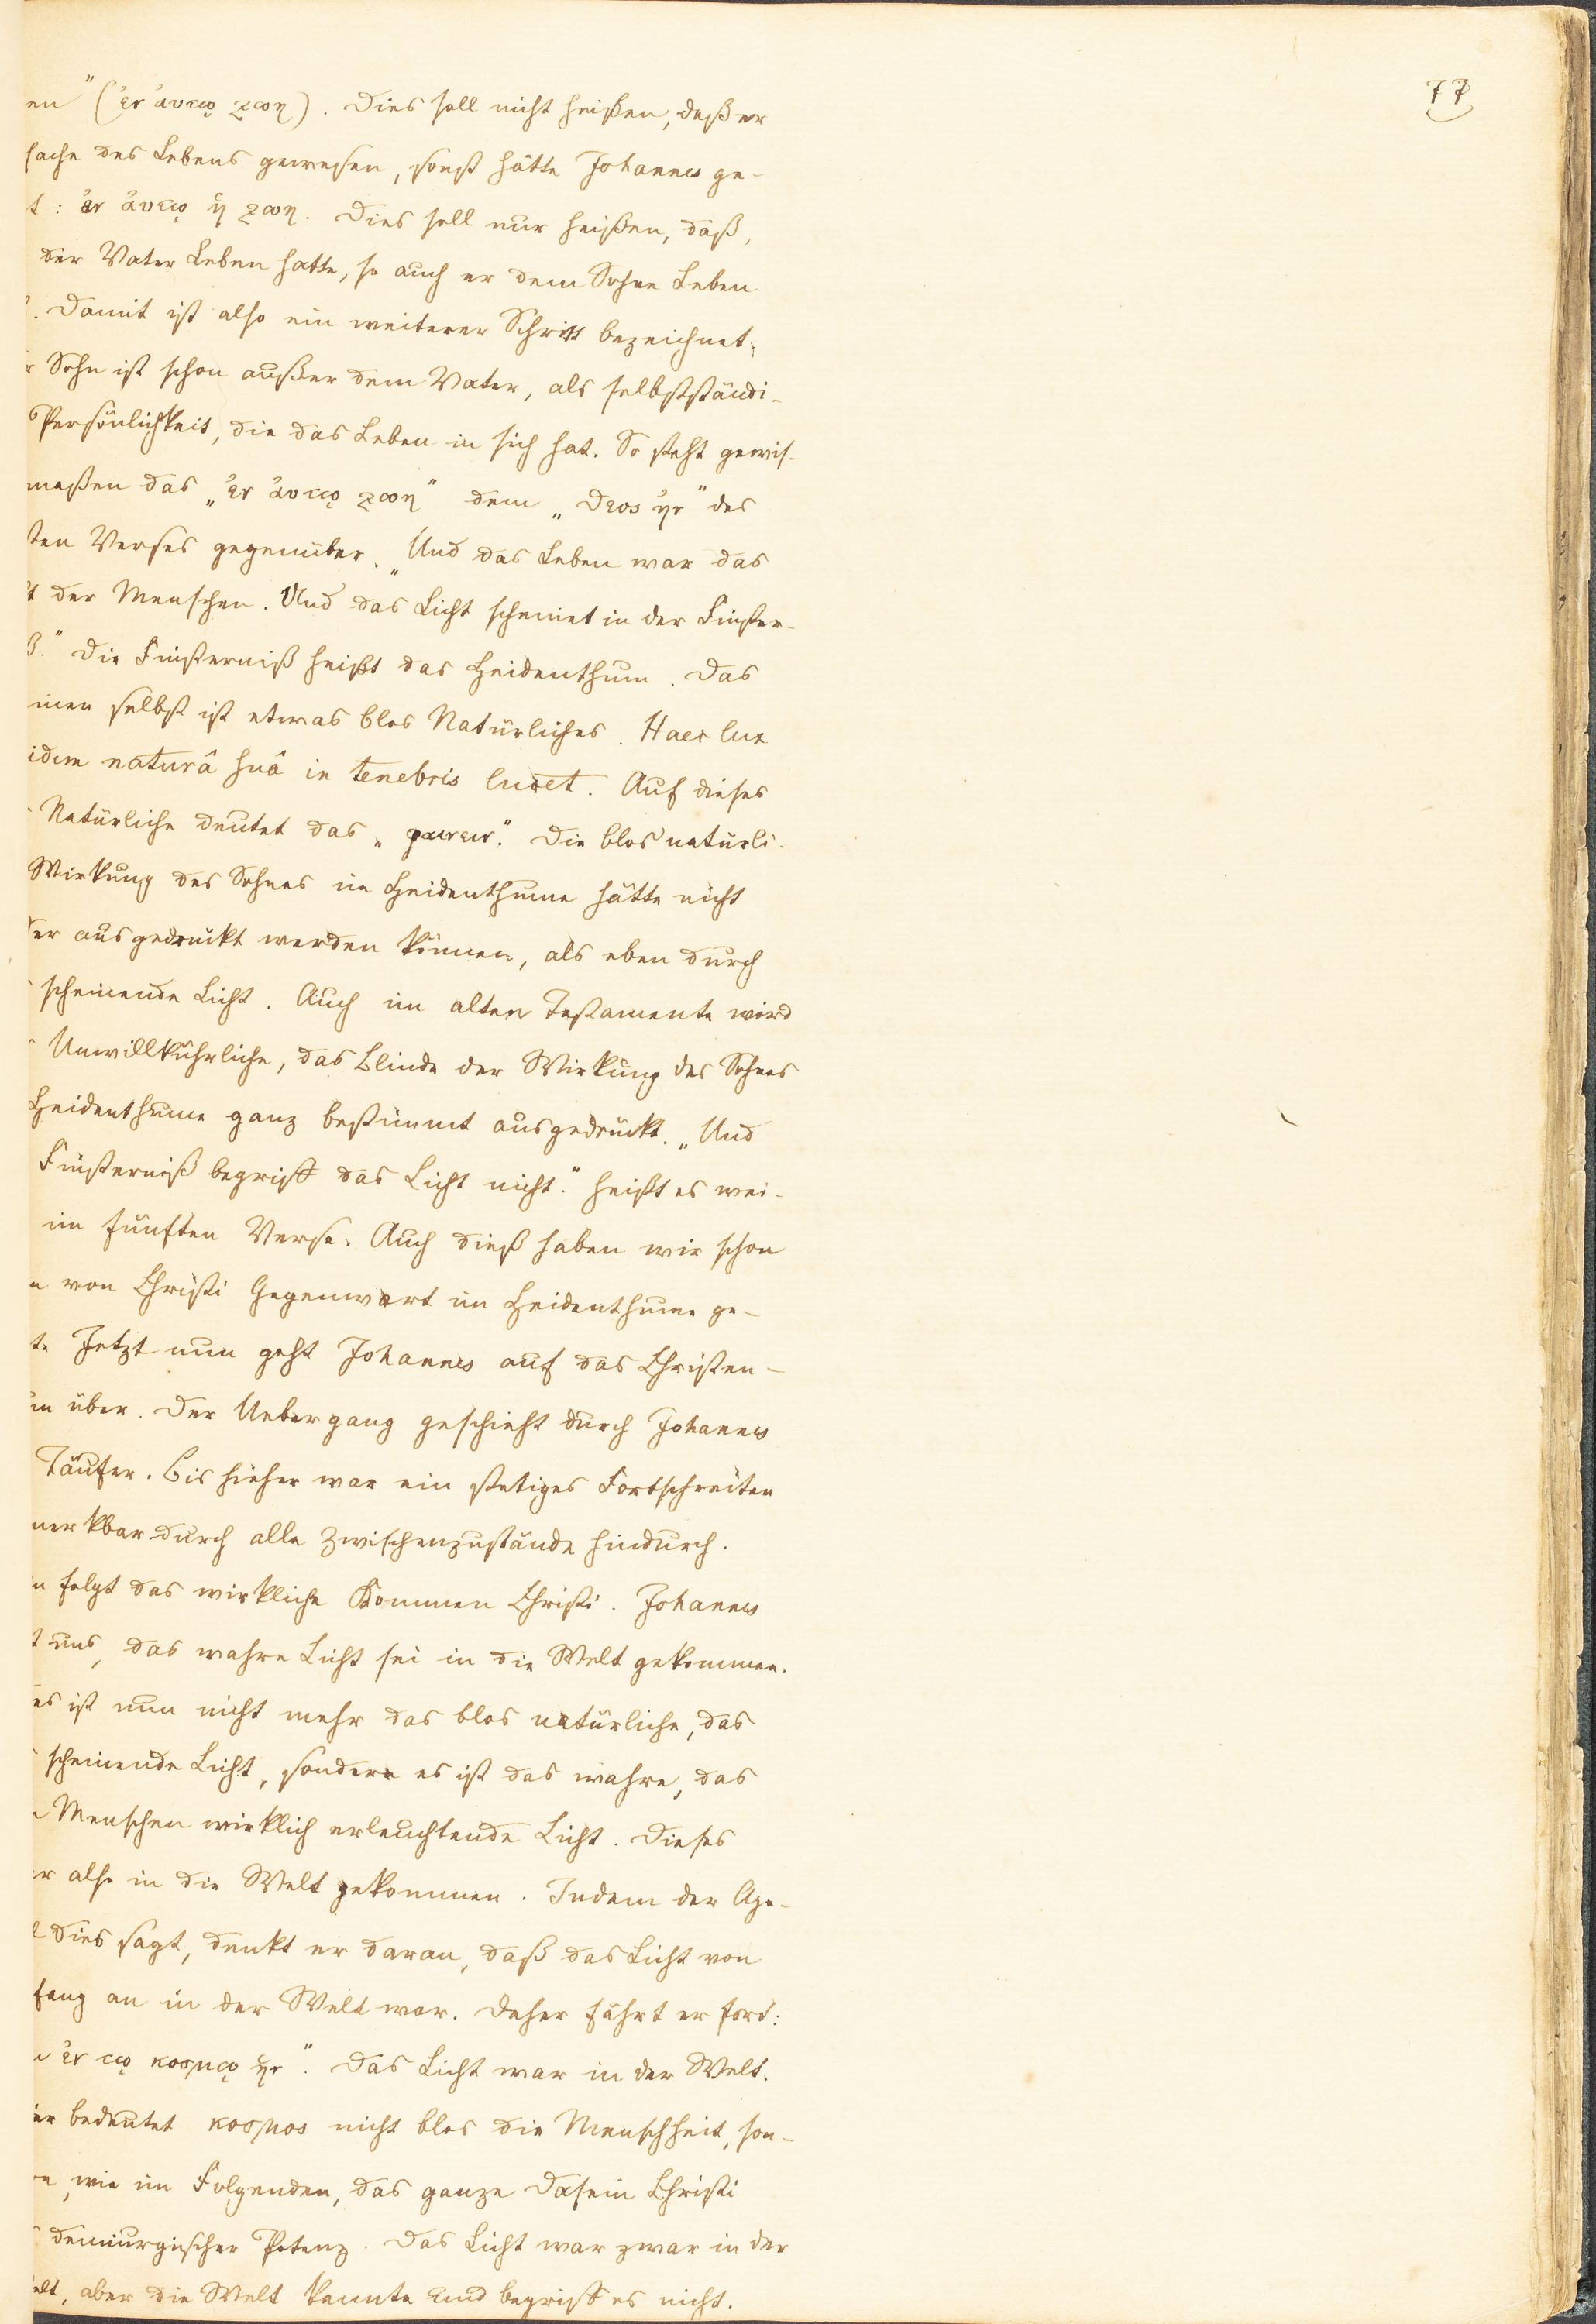 77
en" (ἐν αὐτῳ ζωη). Dies soll nicht heißen, daß er
sache des Lebens gewesen, sonst hätte Johannes ge-
t: ἐν αὐτῳ ἡ ζωη. Dies soll nur heißen, daß,
der Vater Leben hatte, so auch er dem Sohne Leben
. Damit ist also ein weiterer Schritt bezeichnet,
r Sohn ist schon außer dem Vater, als selbstständi-
Persönlichkeit, die das Leben in sich hat. So steht gewis-
maßen das „ἐν αὐτῳ ζωη" dem „θεος ἠν" des
ten Verses gegenüber. „Und das Leben war das
t der Menschen. Und das Licht scheinet in der Finster-
ß." Die Finsterniß heißt das Heidenthum. Das
inen selbst ist etwas blos Natürliches. Haec lux
idem naturâ suâ in tenebris lucet. Auf dieses
Natürliche deutet das „φαινειν". Die blos natürli-
Wirkung des Sohnes im Heidenthume hätte nicht
ser ausgedrückt werden können, als eben durch
scheinende Licht. Auch im alten Testamente wird
Unwillkührliche, das Blinde der Wirkung des Sohnes
Heidenthume ganz bestimmt ausgedrückt. „Und
Finsterniß begriff das Licht nicht." heißt es wei-
im fünften Verse. Auch dieß haben wir schon
n von Christi Gegenwart im Heidenthume ge-
t. Jetzt nun geht Johannes auf das Christen-
m über. Der Uebergang geschieht durch Johannes
Täufer. Bis hieher war ein stetiges Fortschreiten
merkbar durch alle Zwischenzustände hindurch.
n folgt das wirkliche Kommen Christi. Johannes
t uns, das wahre Licht sei in die Welt gekommen.
es ist nun nicht mehr das blos natürliche, das
scheinende Licht, sondern es ist das wahre, das
Menschen wirklich erleuchtende Licht. Dieses
r also in die Welt gekommen. Indem der Apo-
l dies sagt, denkt er daran, daß das Licht von
fang an in der Welt war. Daher fährt er fort:
ἐν τῳ κοσμῳ ἠν". Das Licht war in der Welt.
ier bedeutet κοσμος nicht blos die Menschheit, son-
n, wie im Folgenden, das ganze Dasein Christi
demiurgischer Potenz. Das Licht war zwar in der
elt, aber die Welt kannte und begriff es nicht.